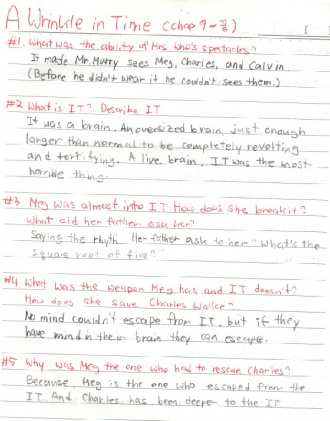 A Wrinkle in Time (chap 9 - 12)
#1. What was the ability of Mrs Who's spectacles?
It made Mr. Murry sees Meg, Charles, and Calvin
(Before he didn't wear it he couldn't sees them.)
#2 What is IT? Describe IT
It was a brain. An oversized brain, just enough
larger than normal to be completely revolting
and terrifying. A live brain, IT was the most
horrible thing.
#3 Meg was almost into IT How does she break it?
What did her father ask her?
Saying the rhyth. Her father ask to her "What's the
square root of five?"
#4 What was the weapon Meg has and IT doesn't?
How does she save Charles Wallce?
No mind couldn't escape from IT, but if they
have mind in their brain they can escape.
#5 Why was Meg the one who had to rescue Charles?
Because, Meg is the one who escaped from the
IT. And Charles has been deeper to the IT